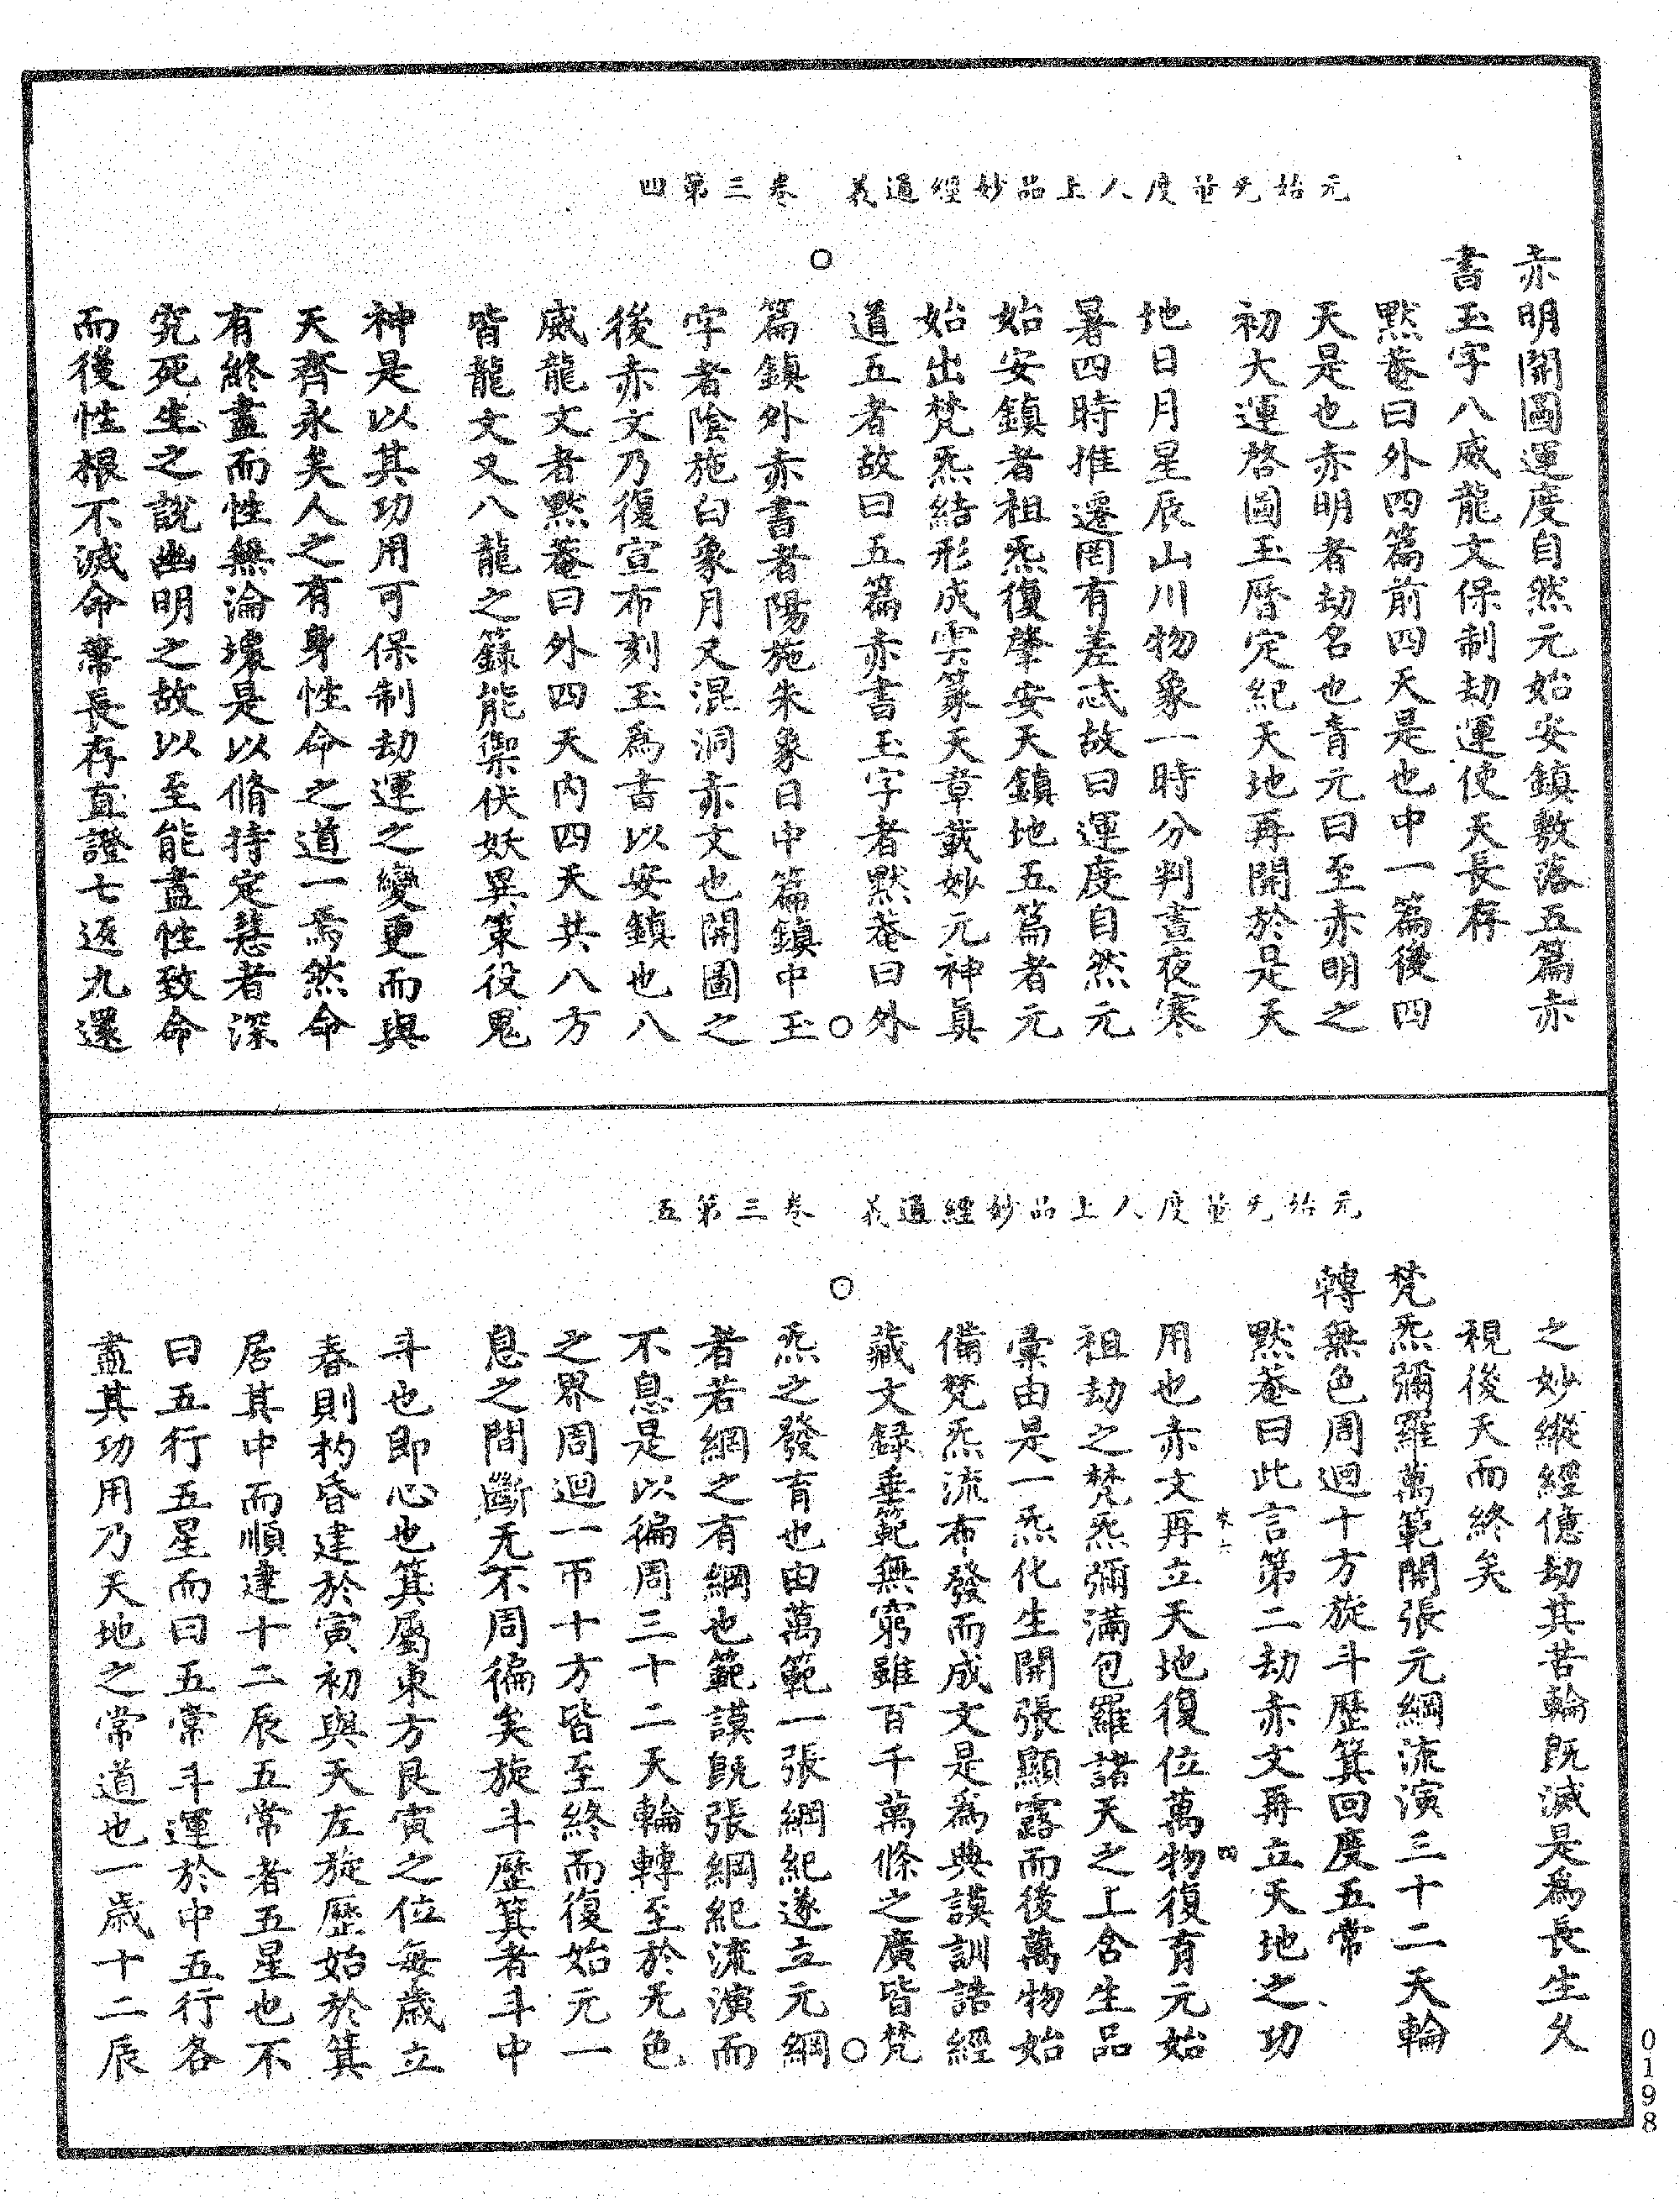 元始无量度人上品妙經通義　卷三第四
赤明開圖運度自然元始安鎮敷落五篇赤
書玉字八威龍文保制劫運使天長存
黙菴曰外四篇前四天是也中一篇後四
天是也赤明者劫名也青元曰至赤明之
初大運啓圖玉曆定紀天地再開於是天
地日月星辰山川物象一時分判晝夜寒
暑四時推遷罔有差忒故曰運度自然元
始安鎮者祖炁復肇安天鎮地五篇者元
始出梵炁結形成雲篆天章載妙元神眞
道五者故曰五篇赤書玉字者黙菴曰外
篇鎮外赤書者陽施朱象日中篇鎮中玉
字者陰施白象月又混洞赤文也開圖之
後赤文乃復宣布刻玉爲書以安鎮也八
威龍文者黙菴曰外四天内四天共八方
皆龍文又八龍之籙能禦伏妖異策役鬼
神是以其功用可保制劫運之變更而與
天齊永矣人之有身性命之道一焉然命
有終盡而性無淪壞是以脩持定慧者深
究死生之說幽明之故以至能盡性致命
而後性根不滅命蒂長存直證七返九還
元始无量度人上品妙經通義　卷三第五
之妙縱經億劫其苦輪旣滅是爲長生久
視後天而終矣
梵炁彌羅萬範開張元綱流演三十二天輪
轉無色周迴十方旋斗歷箕回度五常
黙菴曰此言第二劫赤文再立天地之功
用也赤文再立天地復位萬物復育元始
祖劫之梵炁彌滿包羅諸天之上含生品
彙由是一炁化生開張顯露而後萬物始
備梵炁流布發而成文是爲典謨訓誥經
藏文録垂範無窮雖百千萬條之廣皆梵
炁之發育也由萬範一張綱紀遂立元綱
者若綱之有綱也範謨旣張綱紀流演而
不息是以徧周三十二天輪轉至於无色
之界周迴一帀十方皆至終而復始元一
息之間斷无不周徧矣旋斗歷箕者斗中
斗也即心也箕屬東方艮寅之位每歲立
春則杓昏建於寅初與天左旋歷始於箕
居其中而順建十二辰五常者五星也不
曰五行五星而曰五常斗運於中五行各
盡其功用乃天地之常道也一歲十二辰
四
0198